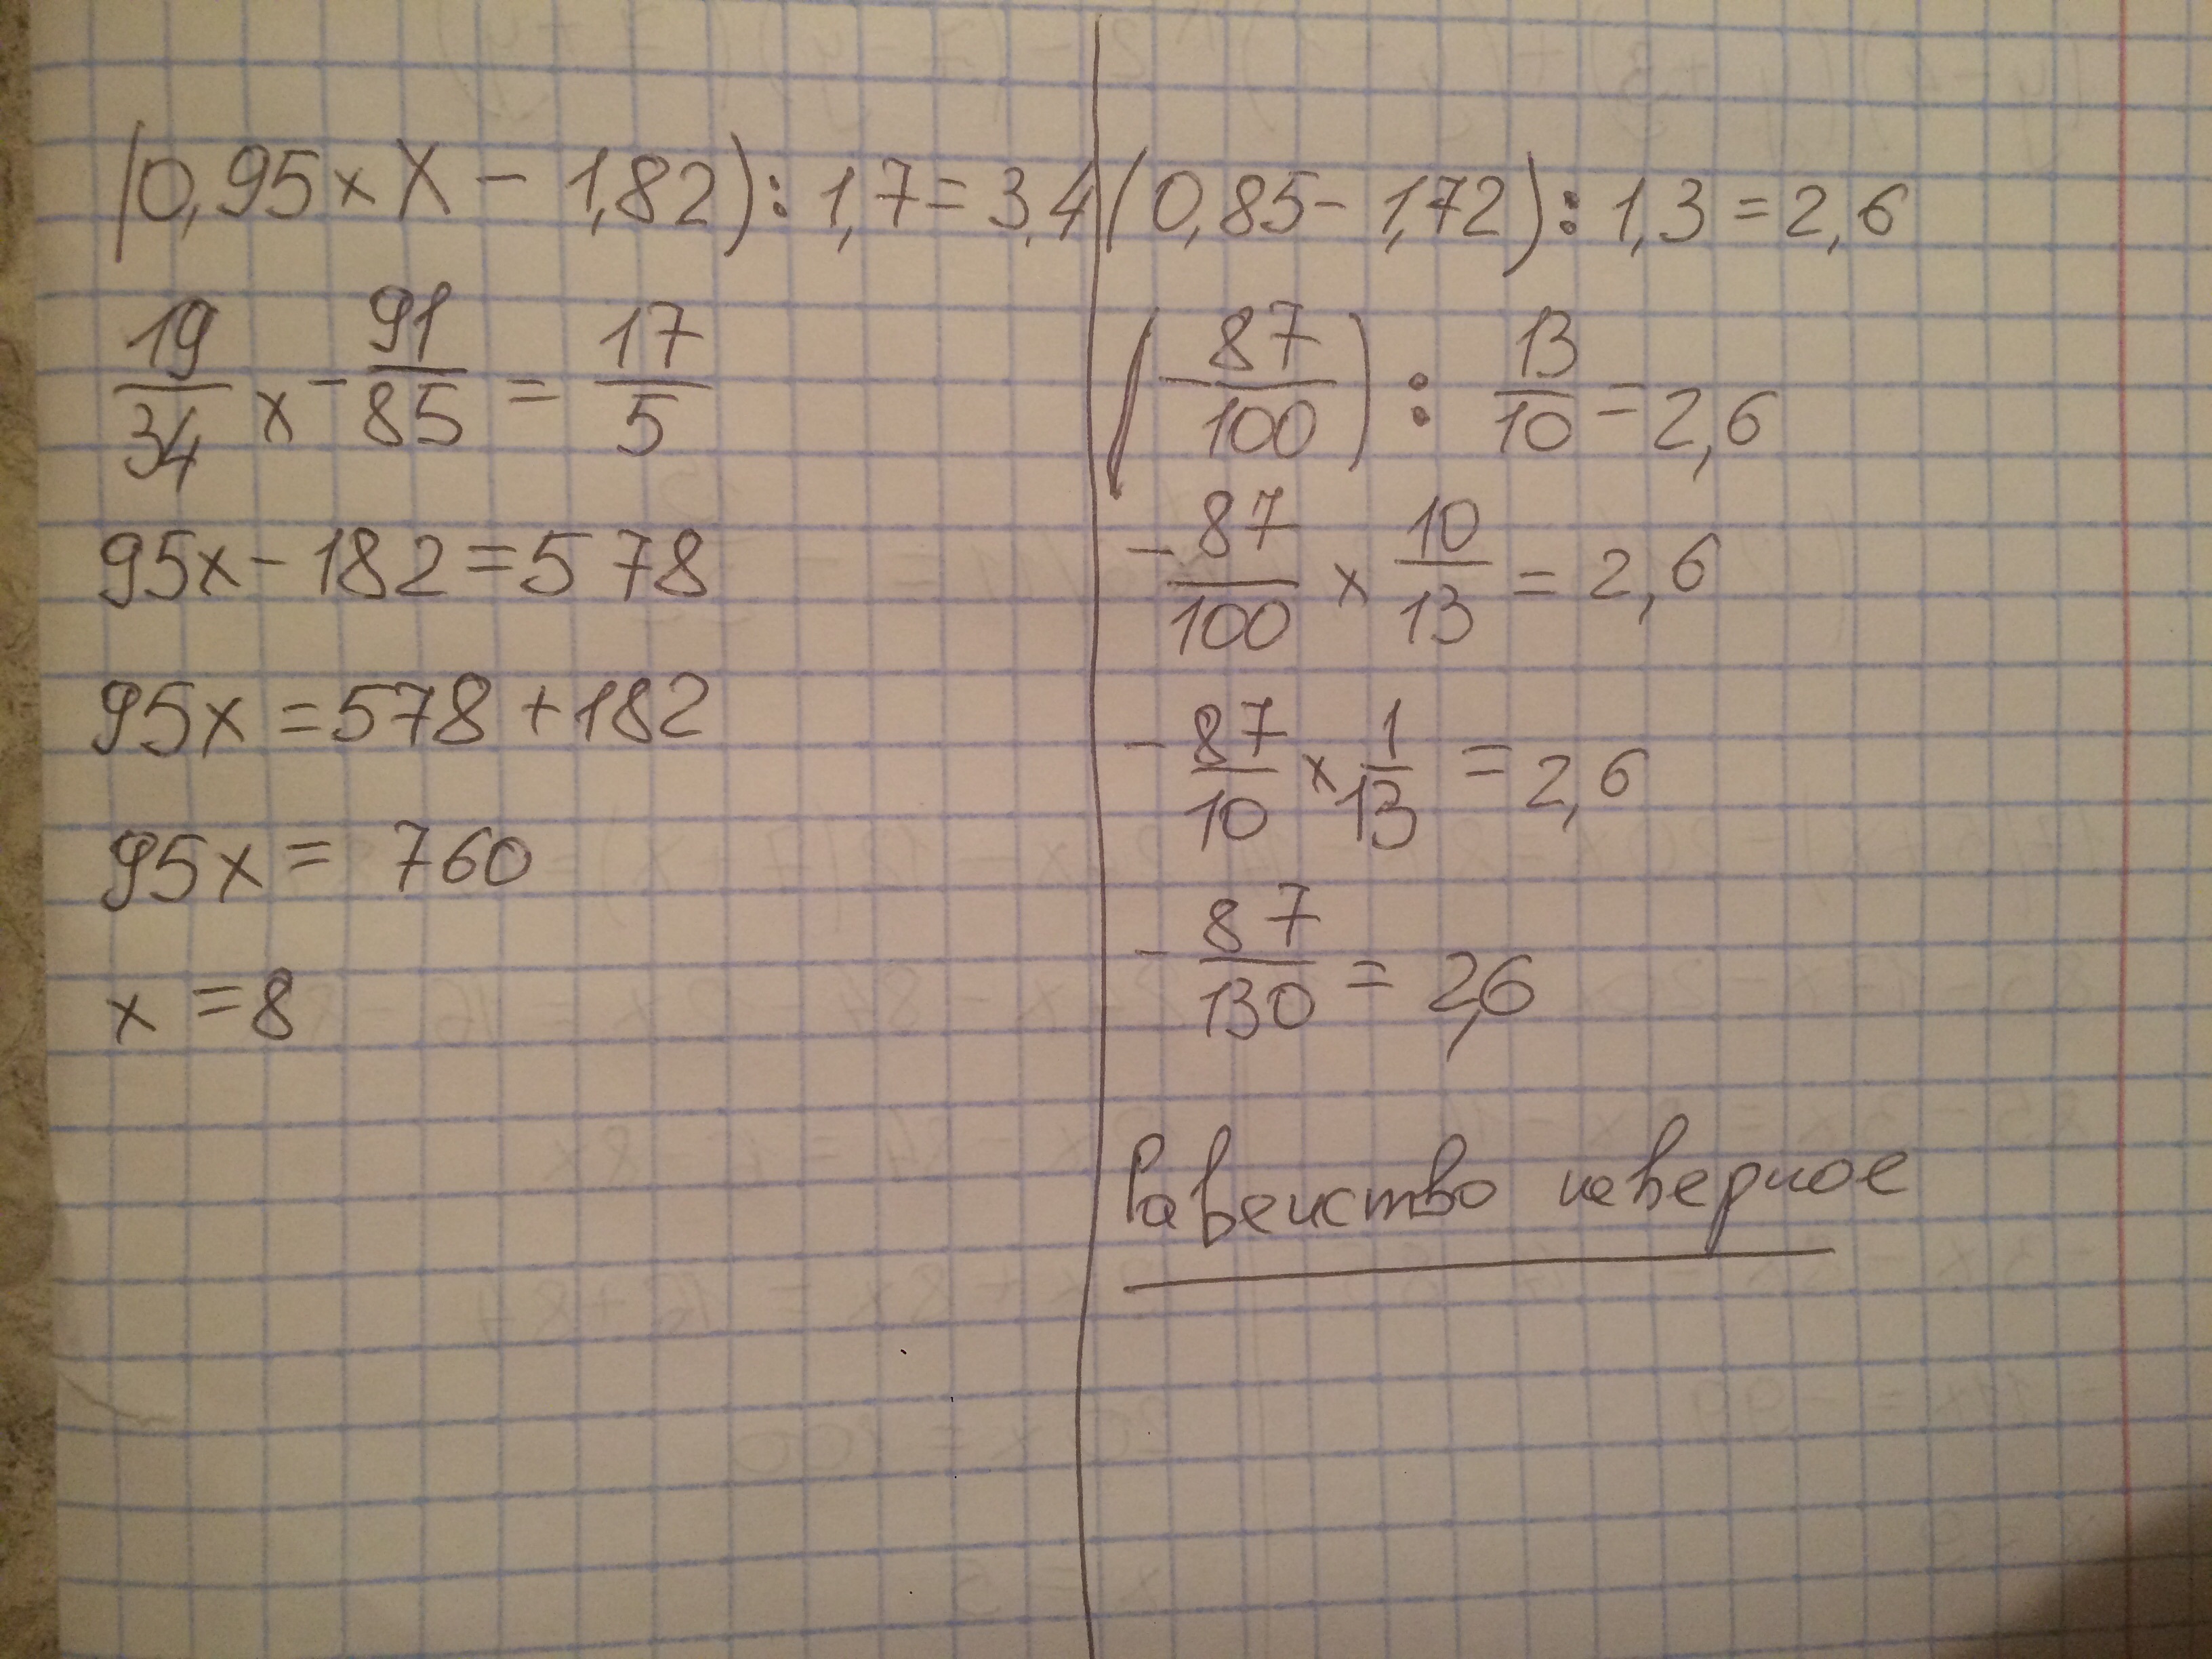 (0,95 × X - 1,82) : 1,7 = 3,4
19/34 x - 91/85 = 17/5
95x - 182 = 578
95x = 578 + 182
95x = 760
x = 8
(0,85 - 1,72) : 1,3 = 2,6
(- 87/100) : 13/10 = 2,6
- 87/100 × 10/13 = 2,6
- 87/10 × 1/13 = 2,6
- 87/130 = 2,6
Равенство неверное